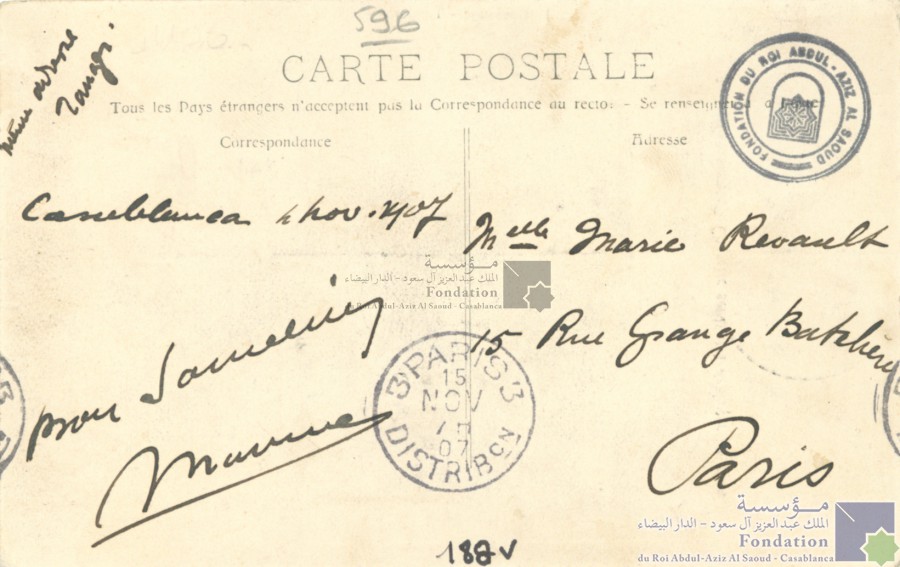 596
même adresse
Tanger.
CARTE POSTALE
Tous les Pays étrangers n'acceptent pas la Correspondance au recto: - Se renseigner à la Poste
Correspondance
Adresse
FONDATION DU ROI ABDUL-AZIZ AL SAOUD
Casablanca 4 nov. 1907
Melle Marie Revault
15 Rue Grange Batelière
Paris
Maurice
3 PARIS 3
15
NOV
07
DISTRIBON
188 V
مؤسسة
الملك عبد العزيز آل سعود - الدار البيضاء
Fondation
du Roi Abdul-Aziz Al Saoud - Casablanca
مؤسسة
الملك عبد العزيز آل سعود - الدار البيضاء
Fondation
du Roi Abdul-Aziz Al Saoud - Casablanca